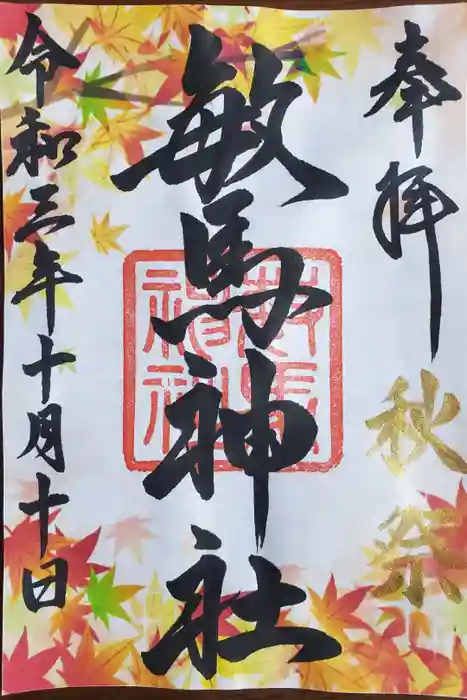 奉拝
秋祭
驚神社
驚神社
令和三年十月十日